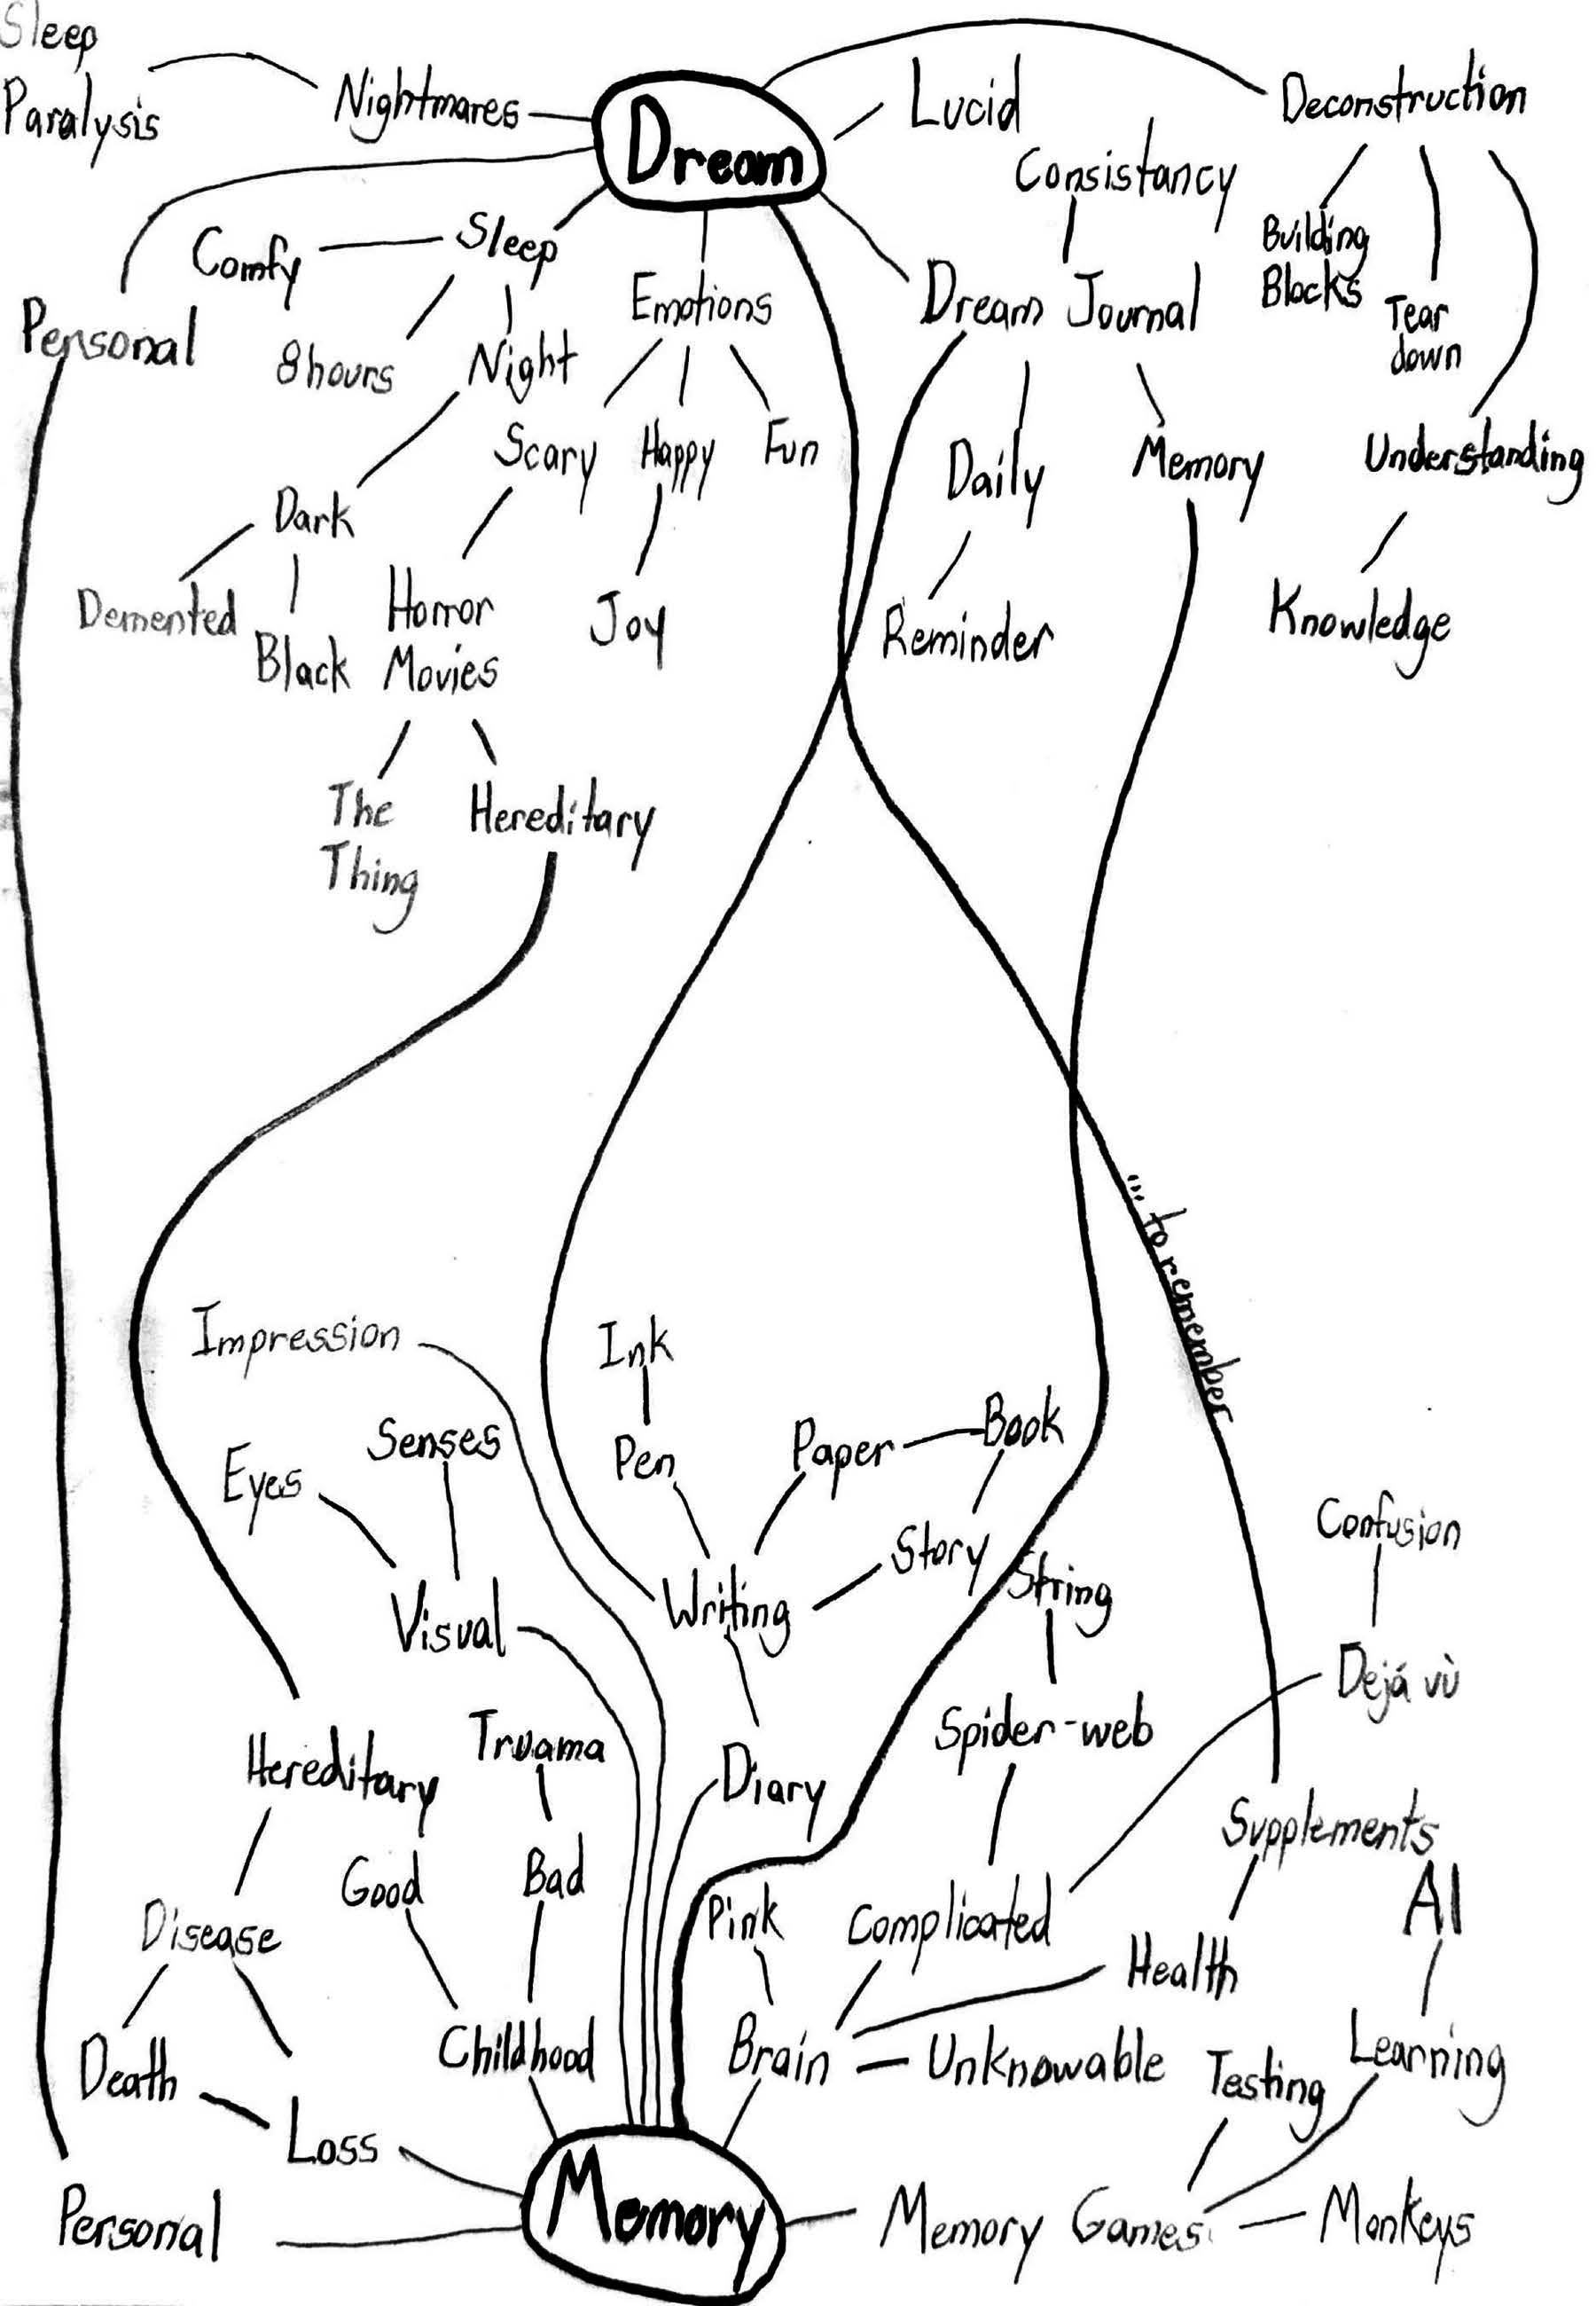 Sleep
Paralysis
Nightmares
Dream
Lucid
Deconstruction
Consistancy
Building
Blocks
Tear
down
Comfy
Sleep
Emotions
Dream Journal
Personal
8 hours
Night
Scary
Happy
Fun
Daily
Memory
Understanding
Dark
Demented
Black
Horror
Movies
Joy
Reminder
Knowledge
The
Thing
Hereditary
... to remember
Impression
Ink
Senses
Eyes
Pen
Paper
Book
Confusion
Story
String
Visual
Writing
Dejá vù
Truama
Hereditary
Diary
Spider-web
Supplements
Good
Bad
Pink
Complicated
AI
Disease
Health
Death
Childhood
Brain
Unknowable
Testing
Learning
Loss
Personal
Memory
Memory Games
Monkeys